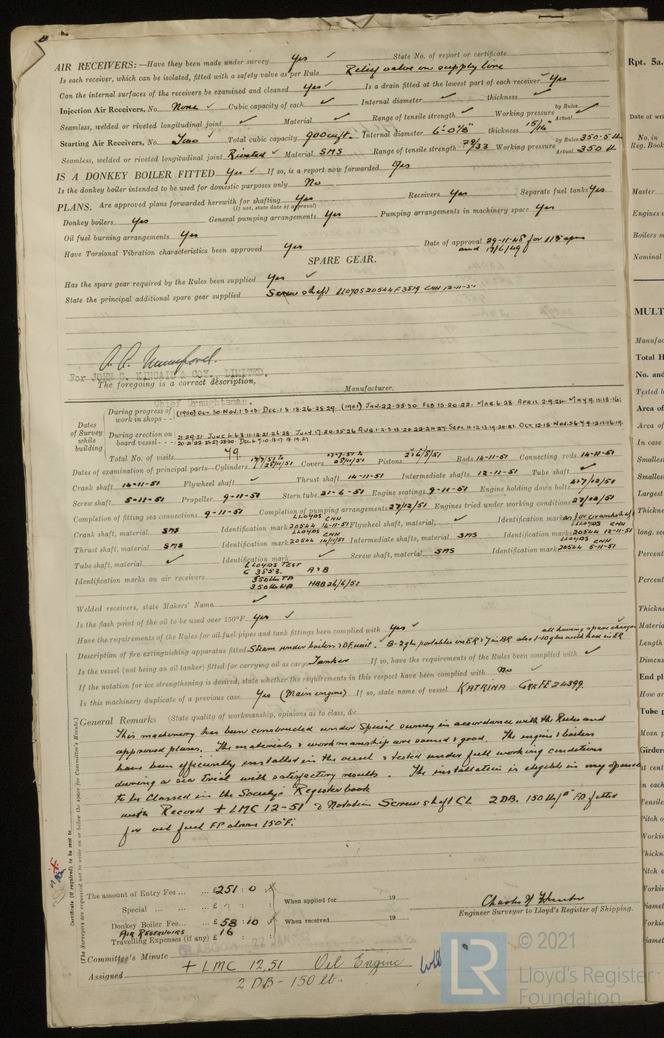 AIR RECEIVERS:—Have they been made under survey Yes ✓ State No. of report or certificate
Is each receiver, which can be isolated, fitted with a safety valve as per Rule Relief valve on supply line
Can the internal surfaces of the receivers be examined and cleaned Yes ✓ Is a drain fitted at the lowest part of each receiver ✓ Yes
Injection Air Receivers, No. None ✓ Cubic capacity of each ✓ Internal diameter ✓ thickness ✓
Seamless, welded or riveted longitudinal joint ✓ Material ✓ Range of tensile strength ✓ Working pressure by Rules Actual ✓
Starting Air Receivers, No. Two ✓ Total cubic capacity 900 cu ft. Internal diameter 6'-0⅛" thickness 15/16"
Seamless, welded or riveted longitudinal joint Riveted ✓ Material SMS Range of tensile strength 29/33 Working pressure by Rules 350.5 lb Actual 350 lb
IS A DONKEY BOILER FITTED Yes ✓ If so, is a report now forwarded Yes
Is the donkey boiler intended to be used for domestic purposes only No
PLANS. Are approved plans forwarded herewith for shafting Yes Receivers Yes Separate fuel tanks Yes
(If not, state date of approval)
Donkey boilers Yes General pumping arrangements Yes Pumping arrangements in machinery space Yes
Oil fuel burning arrangements Yes
Have Torsional Vibration characteristics been approved Yes Date of approval 29-11-48 for 115 rpm
and 17/6/49
SPARE GEAR.
Has the spare gear required by the Rules been supplied Yes ✓
State the principal additional spare gear supplied Screw shaft LLOYDS 20564 F 3519 CHH 12-11-51
For JOHN G. KINCAID & COY., LIMITED.
The foregoing is a correct description,
Manufacturer.
Chief Draughtsman.
Dates of Survey while building
During progress of work in shops - -
During erection on board vessel - - -
Total No. of visits 49
Dates of examination principal parts—Cylinders Covers Pistons Rods 14-11-51 Connecting rods 14-11-51
Crank shaft 14-11-51 Flywheel shaft ✓ Thrust shaft 14-11-51 Intermediate shafts 12-11-51 Tube shaft ✓
Screw shaft 5-11-51 Propeller 9-11-51 Stern tube 21-6-51 Engine seatings 9-11-51 Engine holding down bolts 27/12/51
Completion of fitting sea connections 9-11-51 Completion of pumping arrangements 27/12/51 Engines tried under working conditions 27/12/51
Crank shaft, material SMS Identification mark LLOYDS CHH 20564 14-11-51 Flywheel shaft, material ✓ Identification mark
Thrust shaft, material SMS Identification mark LLOYDS CHH 20564 14/11/51 Intermediate shafts, material SMS Identification marks LLOYDS CHH 20564 12-11-51
Tube shaft, material ✓ Identification mark ✓ Screw shaft, material SMS Identification mark LLOYDS CHH 20564 5-11-51
Identification marks on air receivers
LLOYDS TEST
C 3553. A & B
350 lb TP
350 lb WP HBB 26/6/51
Welded receivers, state Makers' Name ✓
Is the flash point of the oil to be used over 150°F. Yes ✓
Have the requirements of the Rules for oil fuel pipes and tank fittings been complied with Yes ✓
Description of fire extinguishing apparatus fitted Steam under boilers & OF unit. 8-2gln portables in ER & 7 in BR also 1-10gln with hose in ER
all having spare charges
Is the vessel (not being an oil tanker) fitted for carrying oil as cargo Tanker If so, have the requirements of the Rules been complied with ✓
If the notation for ice strengthening is desired, state whether the requirements in this respect have been complied with No
Is this machinery duplicate of a previous case Yes (Main engine) If so, state name of vessel KATRINA GRK FE 24399.
General Remarks (State quality of workmanship, opinions as to class, &c.
This machinery has been constructed under Special survey in accordance with the Rules and
approved plans. The materials & workmanship are sound & good. The engine & boilers
have been efficiently installed in the vessel & tested under full working conditions
during a sea trial with satisfactory results. The installation is eligible in my opinion
to be Classed in the Society's Register book
with Record + LMC 12-51 & Notation Screw shaft CL 2DB. 150 lb/□" FD fitted
for oil fuel FP above 150°F.
Certificate (if required) to be sent to
(The Surveyors are requested not to write on or below the space for Committee's Minute.)
The amount of Entry Fee ... ... £251 : 0 When applied for 19
Special ... ... £ : :
Donkey Boiler Fee... ... £58 : 10 When received 19
AIR RESERVOIRS £16
Travelling Expenses (if any) £
Charles H Hunter
Engineer Surveyor to Lloyd's Register of Shipping.
Committee's Minute
Assigned + LMC 12.51 Oil Engine
2 DB - 150 lb.
Rpt. 5a.
Date of writ
No. in
Reg. Book
Master
Engines
Boilers
Nominal
MULT
Manufac
Total H
No. and
Tested
Area of
Area of
In case
Smallest
Smallest
Largest
Thickn
long. se
Percent
Percent
Thickn
Materia
Length
Dimens
End pl
How ar
Tube p
Mean p
Girder
Pitch o
Workin
LR © 2021
Lloyd's Register
Foundation